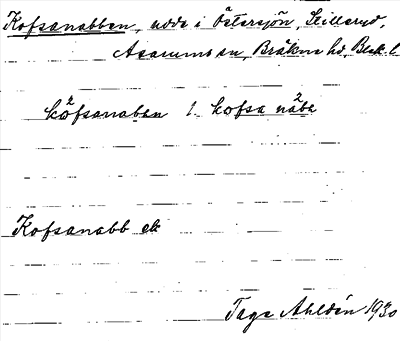 Kofsanabben, udde i Östersjön, Stilleryd,
Asarums sn, Bräkne hd, Blek. l.
kòfsanaben l. kofsa nàbe
Kofsanabb ek
Tage Ahldén 1930